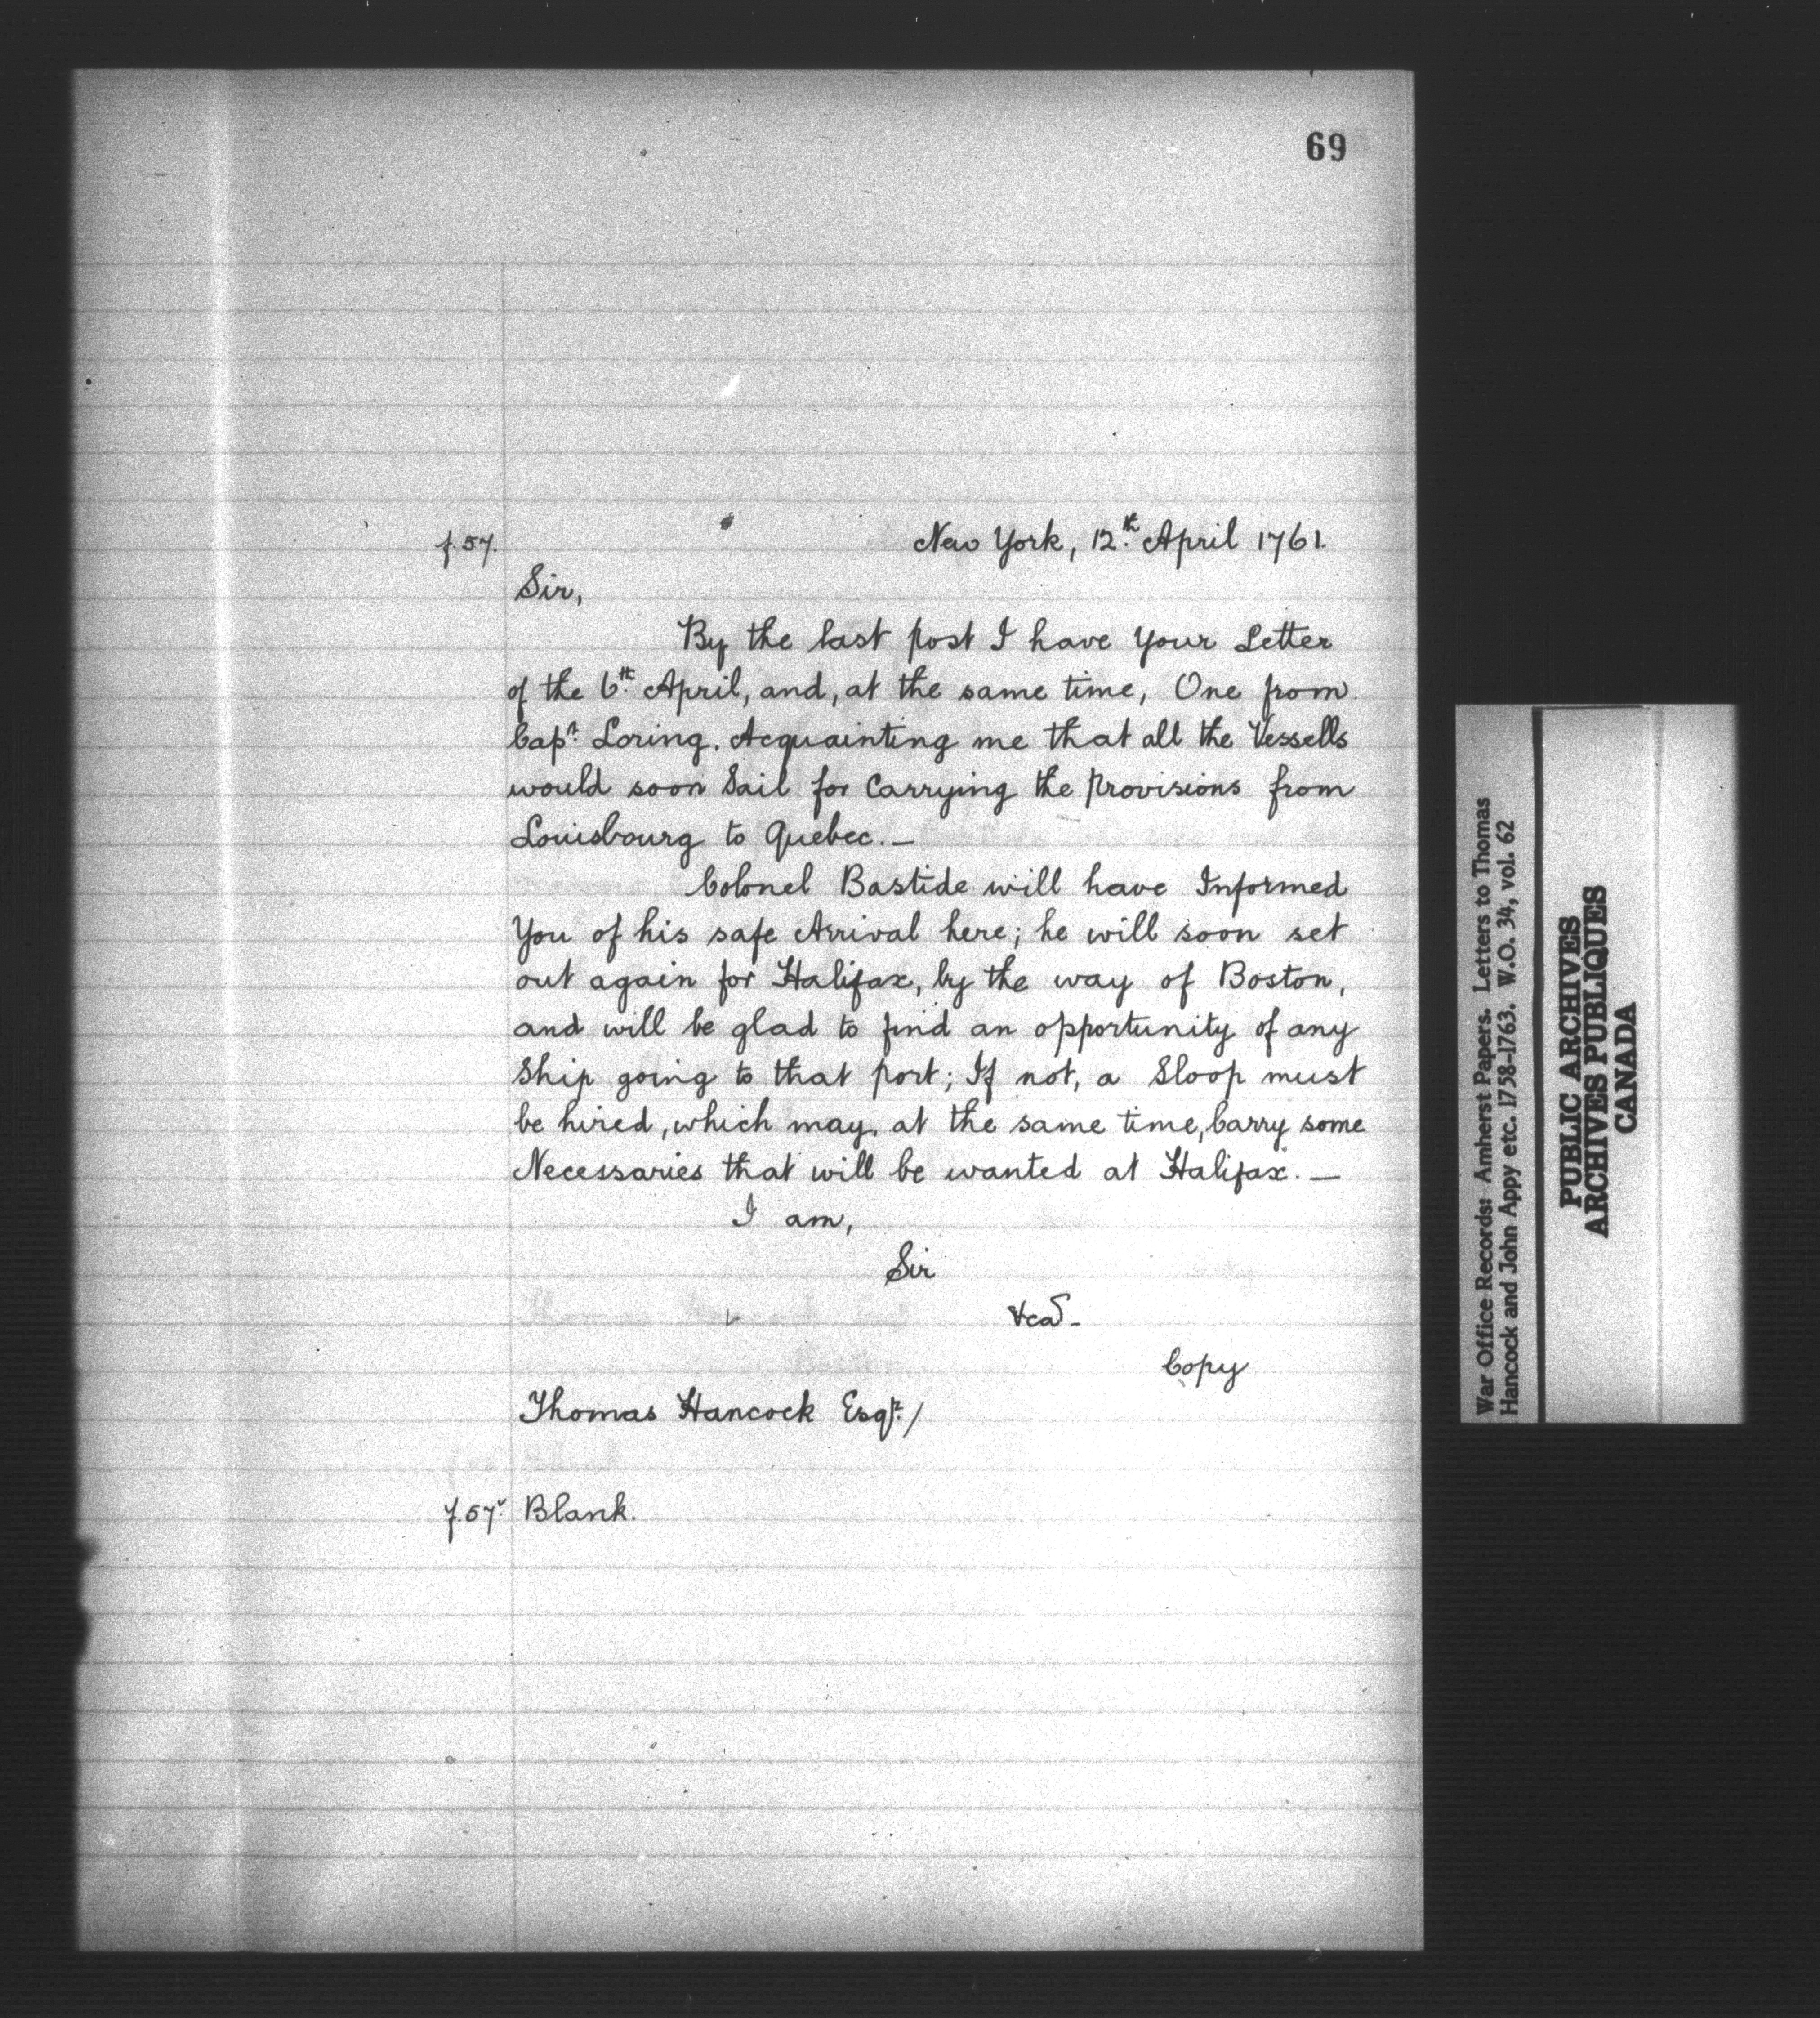 69
f.57. New York, 12th. April 1761.
Sir,
By the last post I have Your Letter
of the 6th. April, and, at the same time, One from
Capt. Loring. Acquainting me that all the Vessells
would soon Sail for Carrying the Provisions from
Louisbourg to Quebec.—
Colonel Bastide will have Informed
You of his safe Arrival here; he will soon set
out again for Halifax, by the way of Boston,
and will be glad to find an opportunity of any
Ship going to that port; If not, a Sloop must
be hired, which may, at the same time, Carry some
Necessaries that will be wanted at Halifax.—
I am,
Sir
&ca-
Copy
Thomas Hancock Esqr./
f.57v. Blank.
War Office Records: Amherst Papers. Letters to Thomas
Hancock and John Appy etc. 1758-1763. W.O. 34, vol. 62
PUBLIC ARCHIVES
ARCHIVES PUBLIQUES
CANADA